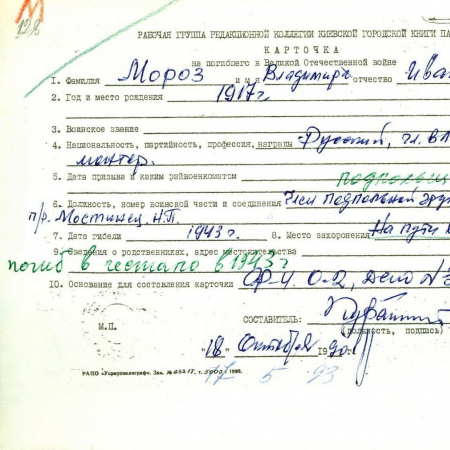 М
128
РАБОЧАЯ ГРУППА РЕДАКЦИОННОЙ КОЛЛЕГИИ КИЕВСКОЙ ГОРОДСКОЙ КНИГИ ПА
КАРТОЧКА
на погибшего в Великой Отечественной войне
1. Фамилия Мороз имя Владимир отчество Ива
2. Год и место рождения 1917 г.
3. Воинское звание
4. Национальность, партийность, профессия, награды Русский, чл. ВЛ
монтер.
5. Дата призыва и каким райвоенкоматом подпольщ
6. Должность, номер воинской части и соединения Член подпольной гру
п/р. Мостинец Н.П.
7. Дата гибели 1943 г. 8. Место захоронения На пути
9. Сведения о родственниках, адрес местожительства
погиб в гестапо в 1943 г
10. Основание для составления карточки Ф-4, О-2, Дело №
СОСТАВИТЕЛЬ:
М.П. (должность, подпись)
"18" Октября 1990 г.
РАПО «Укрвузполиграф». Зак. 1990.
17 5 93